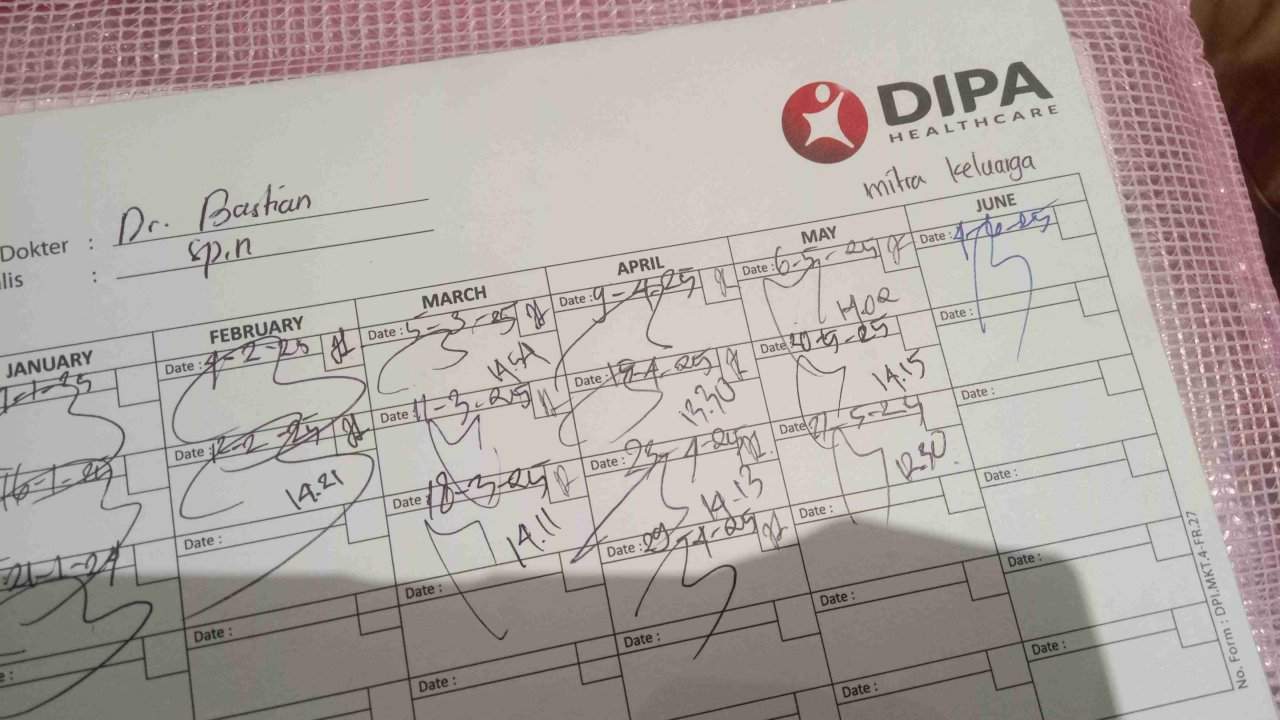 DIPA
HEALTHCARE
mitra keluarga
Dokter : Dr. Bastian
lis : sp.n
JANUARY
FEBRUARY
MARCH
APRIL
MAY
JUNE
Date : 4-2-25
Date : 5-3-25
Date : 9-4-25
Date : 6-5-25
Date : 4-6-25
14.02
16-1-25
Date : 12-2-25
14.21
Date : 11-3-25
Date : 15-4-25
13.30
Date : 20-5-25
14.15
Date :
21-1-2
Date :
Date : 18-3-25
14.11
Date : 23-4-25
14.13
Date : 27-5-25
12.30
Date :
Date :
Date :
Date : 29-4-25
Date :
Date :
Date :
Date :
Date :
Date :
Date :
Date :
No. Form : DPI.MKT.4-FR.27